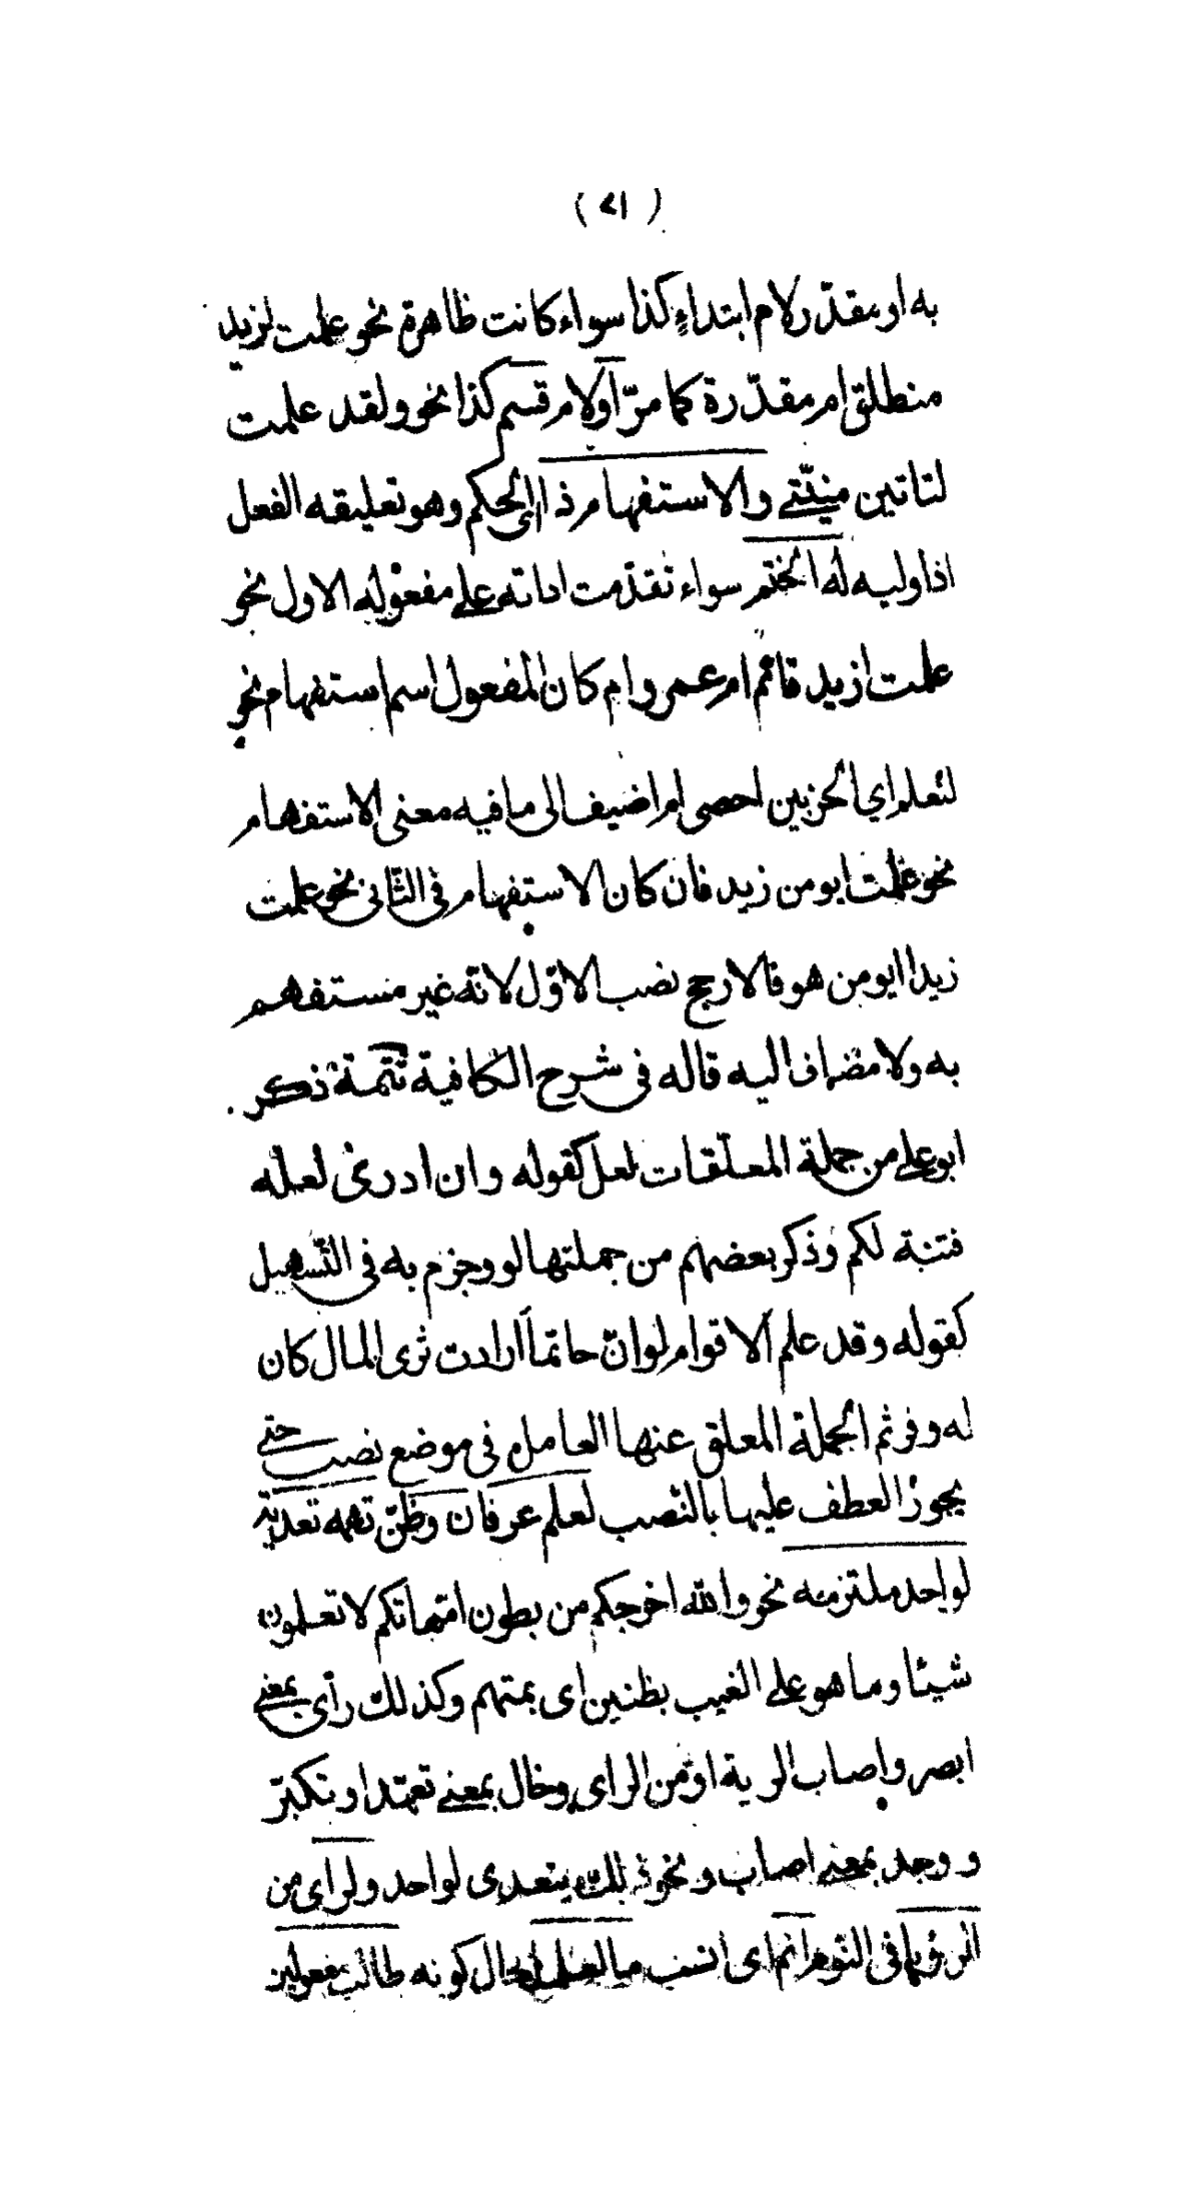 ( ٧١ )
به او مقدّر لام ابتداءٍ كذا سواء كانت ظاهرة نحو علمت لزيد
منطلق ام مقدّرة كما مرّ او لام قسم كذا نحو ولقد علمت
لتاتين منيّتي والاستفهام ذا الحكم وهو تعليقه الفعل
اذا وليه له انحتم سواء تقدّمت اداته على مفعوله الاول نحو
علمت ازيد قائم ام عمرو ام كان المفعول اسم استفهام نحو
لنعلم اي الحزبين احصى ام اضيف الى ما فيه معنى الاستفهام
نحو علمت ابو من زيد فان كان الاستفهام في الثّاني نحو علمت
زيدا ابو من هو فالارجح نصب الاوّل لانّه غير مستفهم
به ولا مضاف اليه قاله في شرح الكافية تتمّة ذكر
ابو علي من جملة المعلّقات لعل كقوله وان ادرى لعله
فتنة لكم وذكر بعضهم من جملتها لو وجزم به في التّسهيل
كقوله وقد علم الاقوام لو انّ حاتما اراد ثرى المال كان
له وفر ثم الجملة المعلق عنها العامل في موضع نصب حتى
يجوز العطف عليها بالنّصب لعلم عرفان وظنّ تهمه تعدية
لواحد ملتزمه نحو والله اخرجكم من بطون امّهاتكم لا تعلمون
شيئا وما هو على الغيب بظنين اى بمتهم وكذلك رأى بمعنى
ابصر واصاب الرية او من الراى وخال بمعنى تعهّد او تكبّر
و وجد بمعنى اصاب ونحو ذلك يتعدى لواحد ولراى من
الرؤيا في النّوم انم اى انسب ما لعلما حال كونه طالب مفعولين